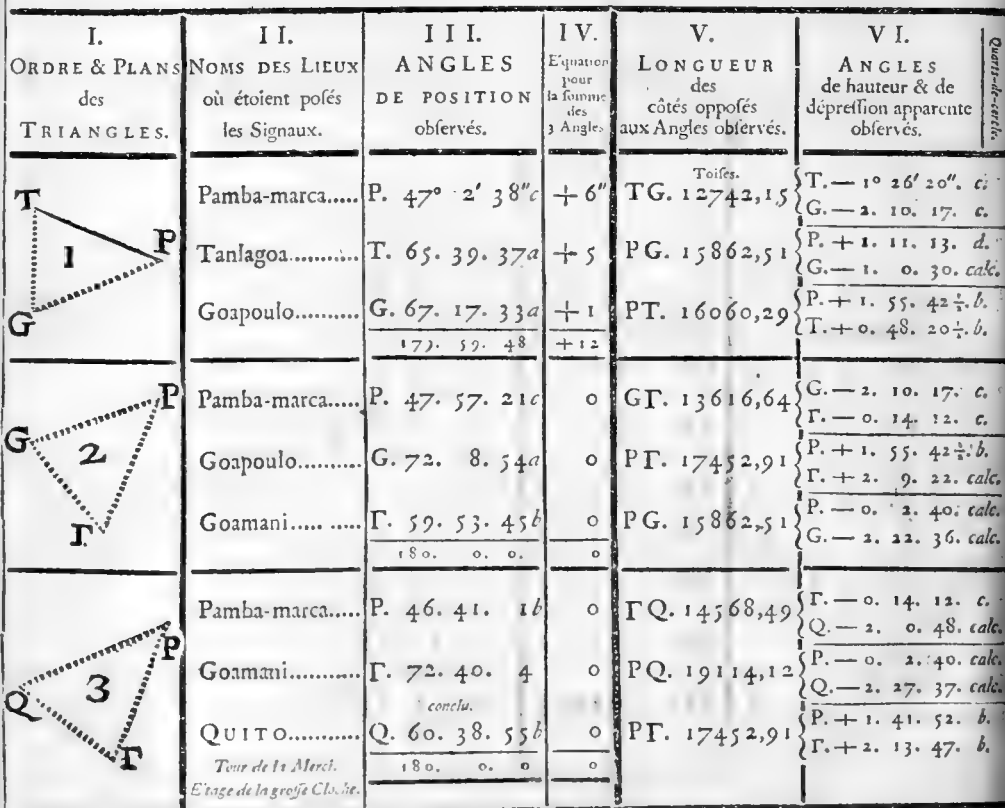 I. II. III. IV. V. VI.
ORDRE & PLANS des TRIANGLES.
NOMS DES LIEUX où étoient posés les Signaux.
ANGLES DE POSITION observés.
Equation pour la somme des 3 Angles
LONGUEUR des côtés opposés aux Angles observés.
ANGLES de hauteur & de dépression apparente observés.
Quarts-de-cercle
T P G 1
Toises.
Pamba-marca..... P. 47° 2' 38"c +6" TG. 12742,15 T.— 1° 26' 20". c.
G.— 2. 10. 17. c.
Tanlagoa.......... T. 65. 39. 37a +5 PG. 15862,51 P. + 1. 11. 13. d.
G.— 1. 0. 30. calc.
Goapoulo.......... G. 67. 17. 33a +1 PT. 16060,29 P. + 1. 55. 42½. b.
T. + 0. 48. 20½. b.
179. 59. 48 +12
P G 2 Γ
Pamba-marca..... P. 47. 57. 21c 0 GΓ. 13616,64 G.— 2. 10. 17. c.
Γ. — 0. 14. 12. c.
Goapoulo.......... G. 72. 8. 54a 0 PΓ. 17452,91 P. + 1. 55. 42½. b.
Γ. + 2. 9. 22. calc.
Goamani..... ..... Γ. 59. 53. 45b 0 PG. 15862,51 P. — 0. 2. 40. calc.
G. — 2. 22. 36. calc.
180. 0. 0. 0
P Q 3 Γ
Pamba-marca..... P. 46. 41. 1b 0 ΓQ. 14568,49 Γ. — 0. 14. 12. c.
Q. — 2. 0. 48. calc.
Goamani.......... Γ. 72. 40. 4 0 PQ. 19114,12 P. — 0. 2. 40. calc.
Q. — 2. 27. 37. calc.
conclu.
QUITO........... Q. 60. 38. 55b 0 PΓ. 17452,91 P. + 1. 41. 52. b.
Γ. + 2. 13. 47. b.
Tour de la Merci. 180. 0. 0 0
Etage de la grosse Cloche.